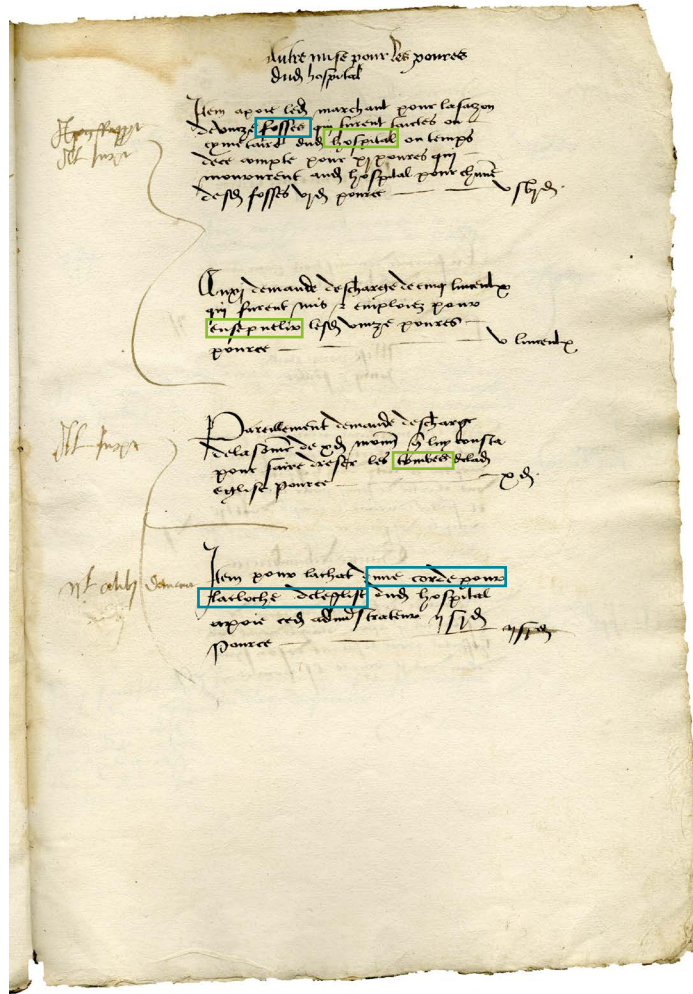 Autre mise pour les poures
dud hospital
Item a poié led marchant pour la fazon
de unze fosses qui furent faictes ou
cymetaire dud hospital ou temps
de ce compte pour xj poures qui
moururent aud hospital pour chune
desd fosses vj d pource
v s vj d
Auxi demande descharge de cinq linceulx
qui furent mis & emploiez pour
ensepuelir lesd unze poures
pource
v linceulx
Pareillement demande descharge
de la some de x d
pour faire dreser les tombes de lad
eglise pource
x d
Item pour lachat dune corde pour
la cloche de leglise dud hospital
a poié ced administrateur ij s j d
pource
ij s j d